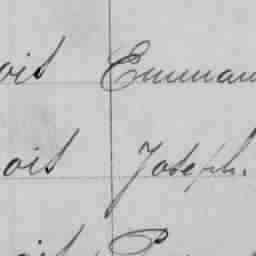 oit Emman
ois Joseph.